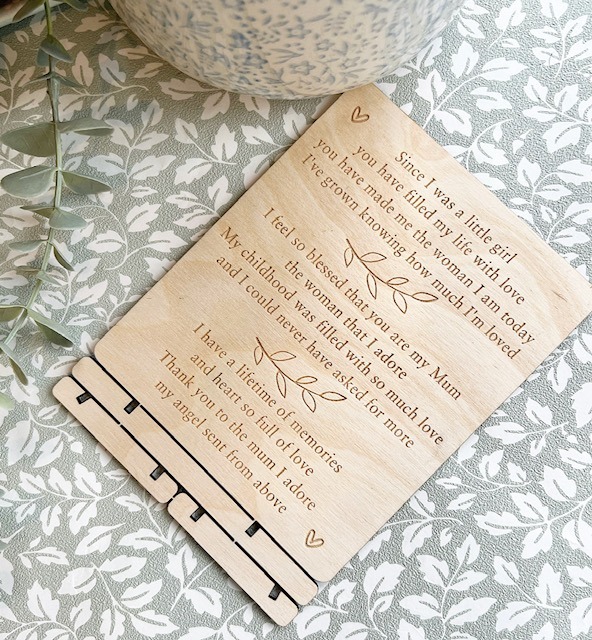 Since I was a little girl
you have filled my life with love
you have made me the woman I am today
I've grown knowing how much I'm loved
I feel so blessed that you are my Mum
the woman that I adore
My childhood was filled with so much love
and I could never have asked for more
I have a lifetime of memories
and heart so full of love
Thank you to the mum I adore
my angel sent from above